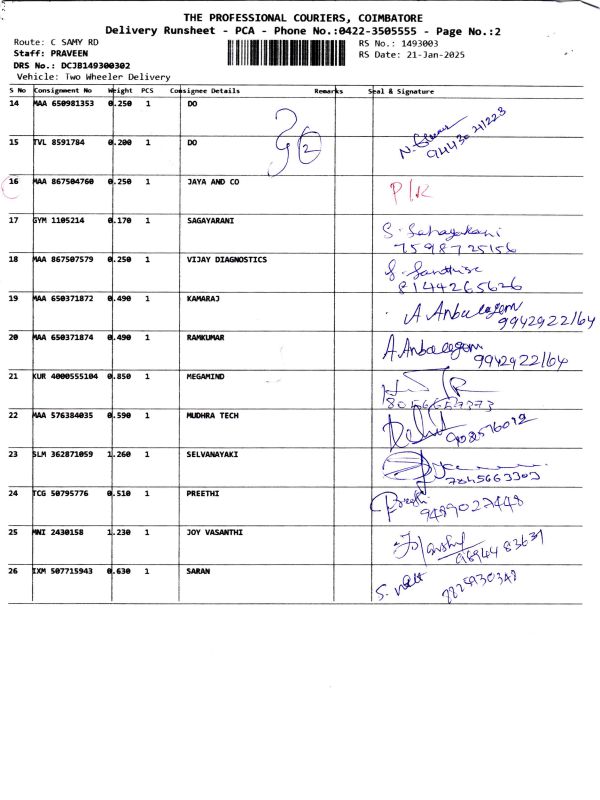 THE PROFESSIONAL COURIERS, COIMBATORE
Delivery Runsheet - PCA - Phone No.:0422-3505555 - Page No.:2
Route: C SAMY RD RS No.: 1493003
Staff: PRAVEEN RS Date: 21-Jan-2025
DRS No.: DCJB149300302
Vehicle: Two Wheeler Delivery
S No Consignment No Weight PCS Consignee Details Remarks Seal & Signature
14 MAA 650981353 0.250 1 DO
15 TVL 8591784 0.200 1 DO 2
16 MAA 867504760 0.250 1 JAYA AND CO P/R
17 GYM 1105214 0.170 1 SAGAYARANI S. Sahayarani
7598725156
18 MAA 867507579 0.250 1 VIJAY DIAGNOSTICS
8144265626
19 MAA 650371872 0.490 1 KAMARAJ A Anbalagan
9942922164
20 MAA 650371874 0.490 1 RAMKUMAR A. Anbalagan
9942922164
21 KUR 4000555104 0.850 1 MEGAMIND
22 MAA 576384035 0.590 1 MUDHRA TECH
23 SLM 362871059 1.260 1 SELVANAYAKI
7845663303
24 TCG 50795776 0.510 1 PREETHI Preethi
9489027448
25 MNI 2430158 1.230 1 JOY VASANTHI
26 IXM 507715943 0.630 1 SARAN